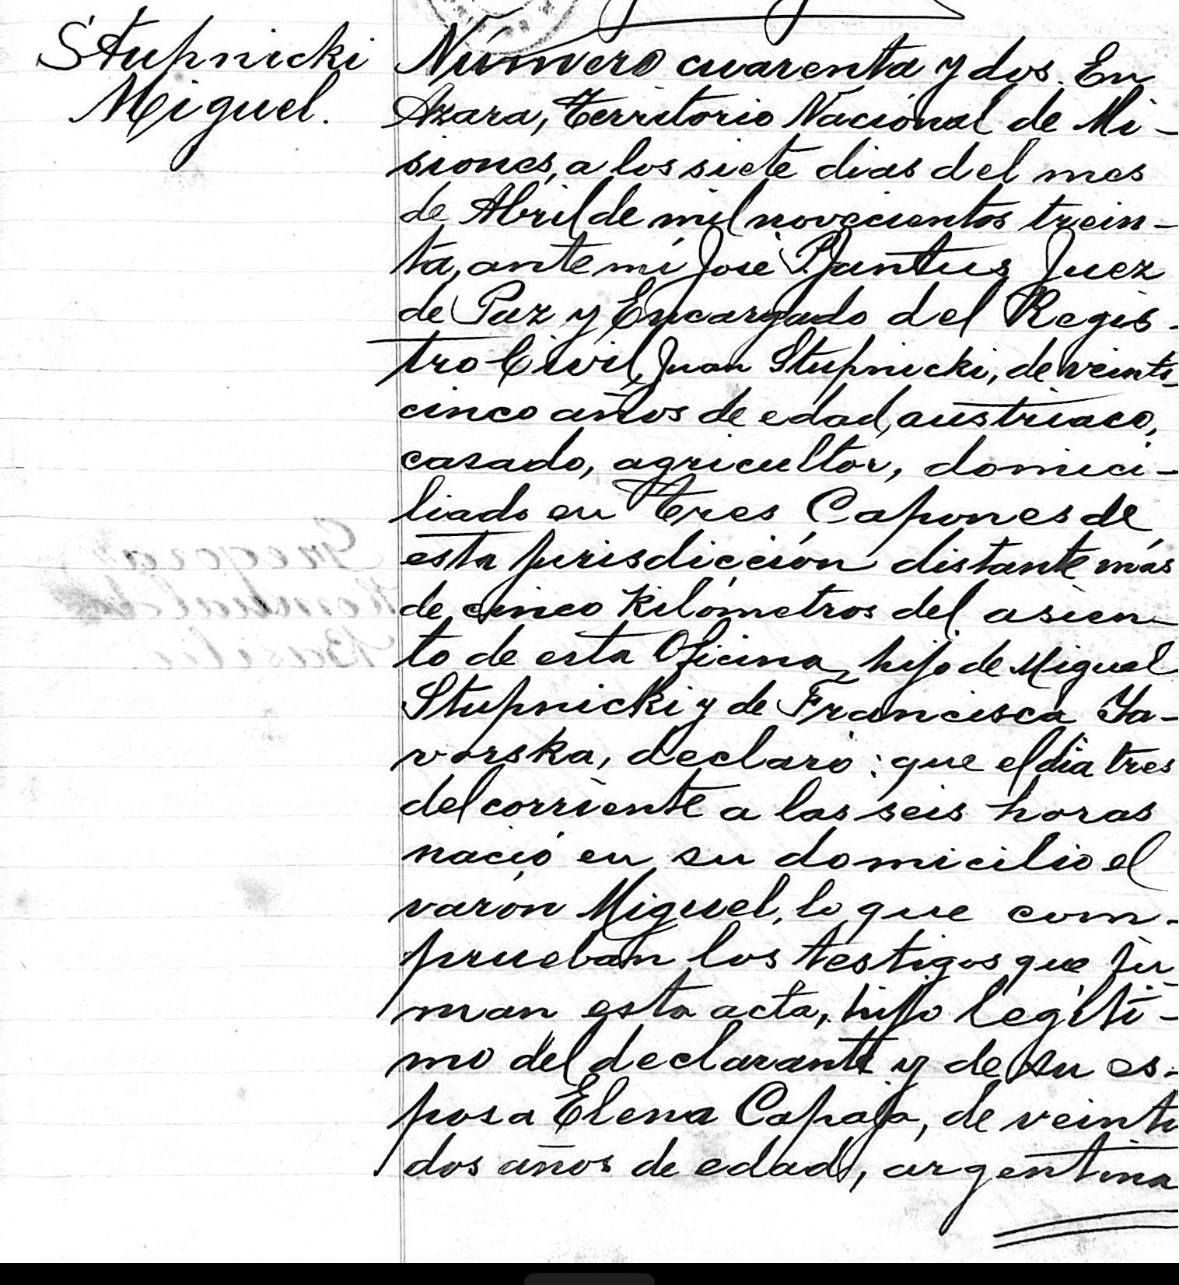 Stupnicki
Miguel.
Número cuarenta y dos. En
Azara, Territorio Nacional de Mi-
siones, a los siete dias del mes
de Abril de mil novecientos trein-
ta, ante mi José P. Jantus Juez
de Paz y Encargado del Regis-
tro Civil, Juan Stupnicki, de veinti
cinco años de edad, austriaco,
casado, agricultor, domici-
liado en Tres Capones de
esta jurisdicción distante más
de cinco kilómetros del asien-
to de esta Oficina, hijo de Miguel
Stupnicki y de Francisca Ya-
vorska, declaró: que el dia tres
del corriente a las seis horas
nació en su domicilio el
varón Miguel, lo que com-
prueban los testigos que fir
man esta acta, hijo legíti-
mo del declarante y de su es-
posa Elena Capaja, de veinti
dos años de edad, argentina